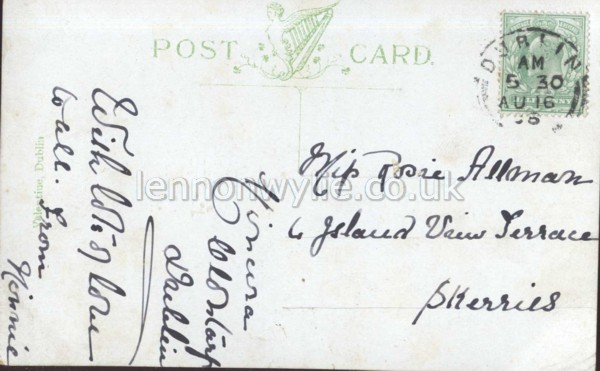 POST CARD.
DUBLIN
AM
5 30
AU 16
08
Miss Rosie Allman
6 Island View Terrace
Skerries
With lots of love
to all. From
Winnie
Clontarf
Dublin
Dublin
lennonwylie.co.uk